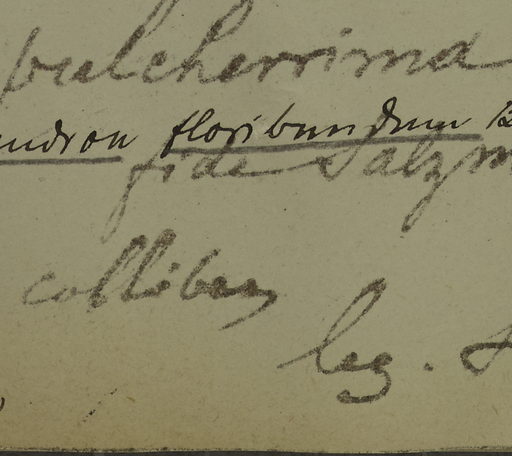 pulcherrima
endron floribundum B
fide Salzm
collibus
leg. S